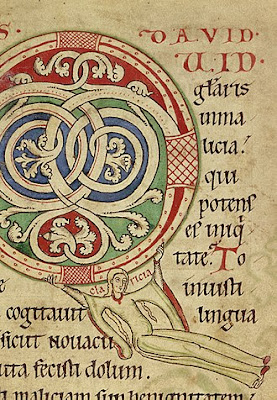 S. DAVID.
UID
glaris
inma
licia?
qui
potens
es iniq
tate. To
CLARICIA
iniusti
cogitauit lingua
sicut nouacu
uta fecisti dolum.
maliciam sup benignitatem